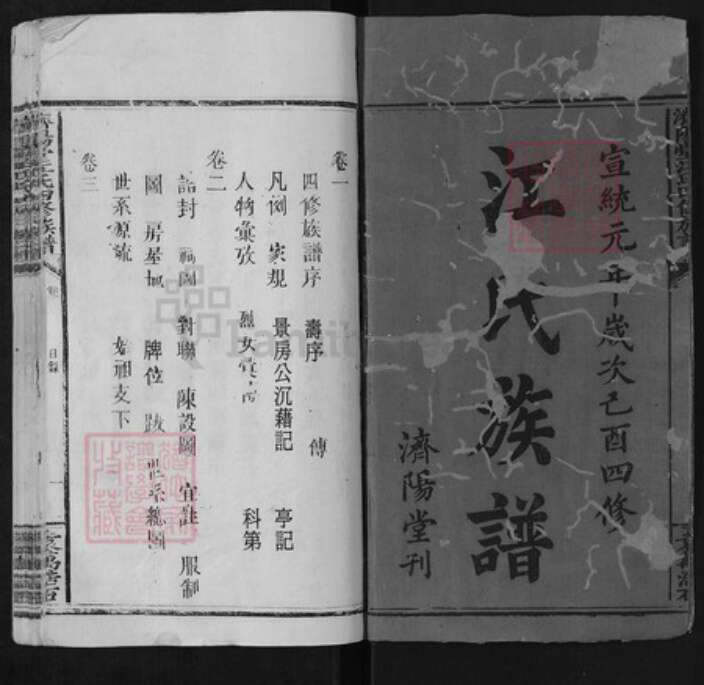 宣統元年歲次己酉四修
江氏族譜
濟陽堂刊
卷一
四修族譜序 壽序 傳
凡例 家規 景房公沉藉記 亭記
人物彙攷 烈女 科第
卷二
誥封 圖 對聯 陳設圖 宜註 服制
圖 房屋 牌位 跋 世系總圖
世系源流 始祖支下
卷三
目錄
氏四修族譜